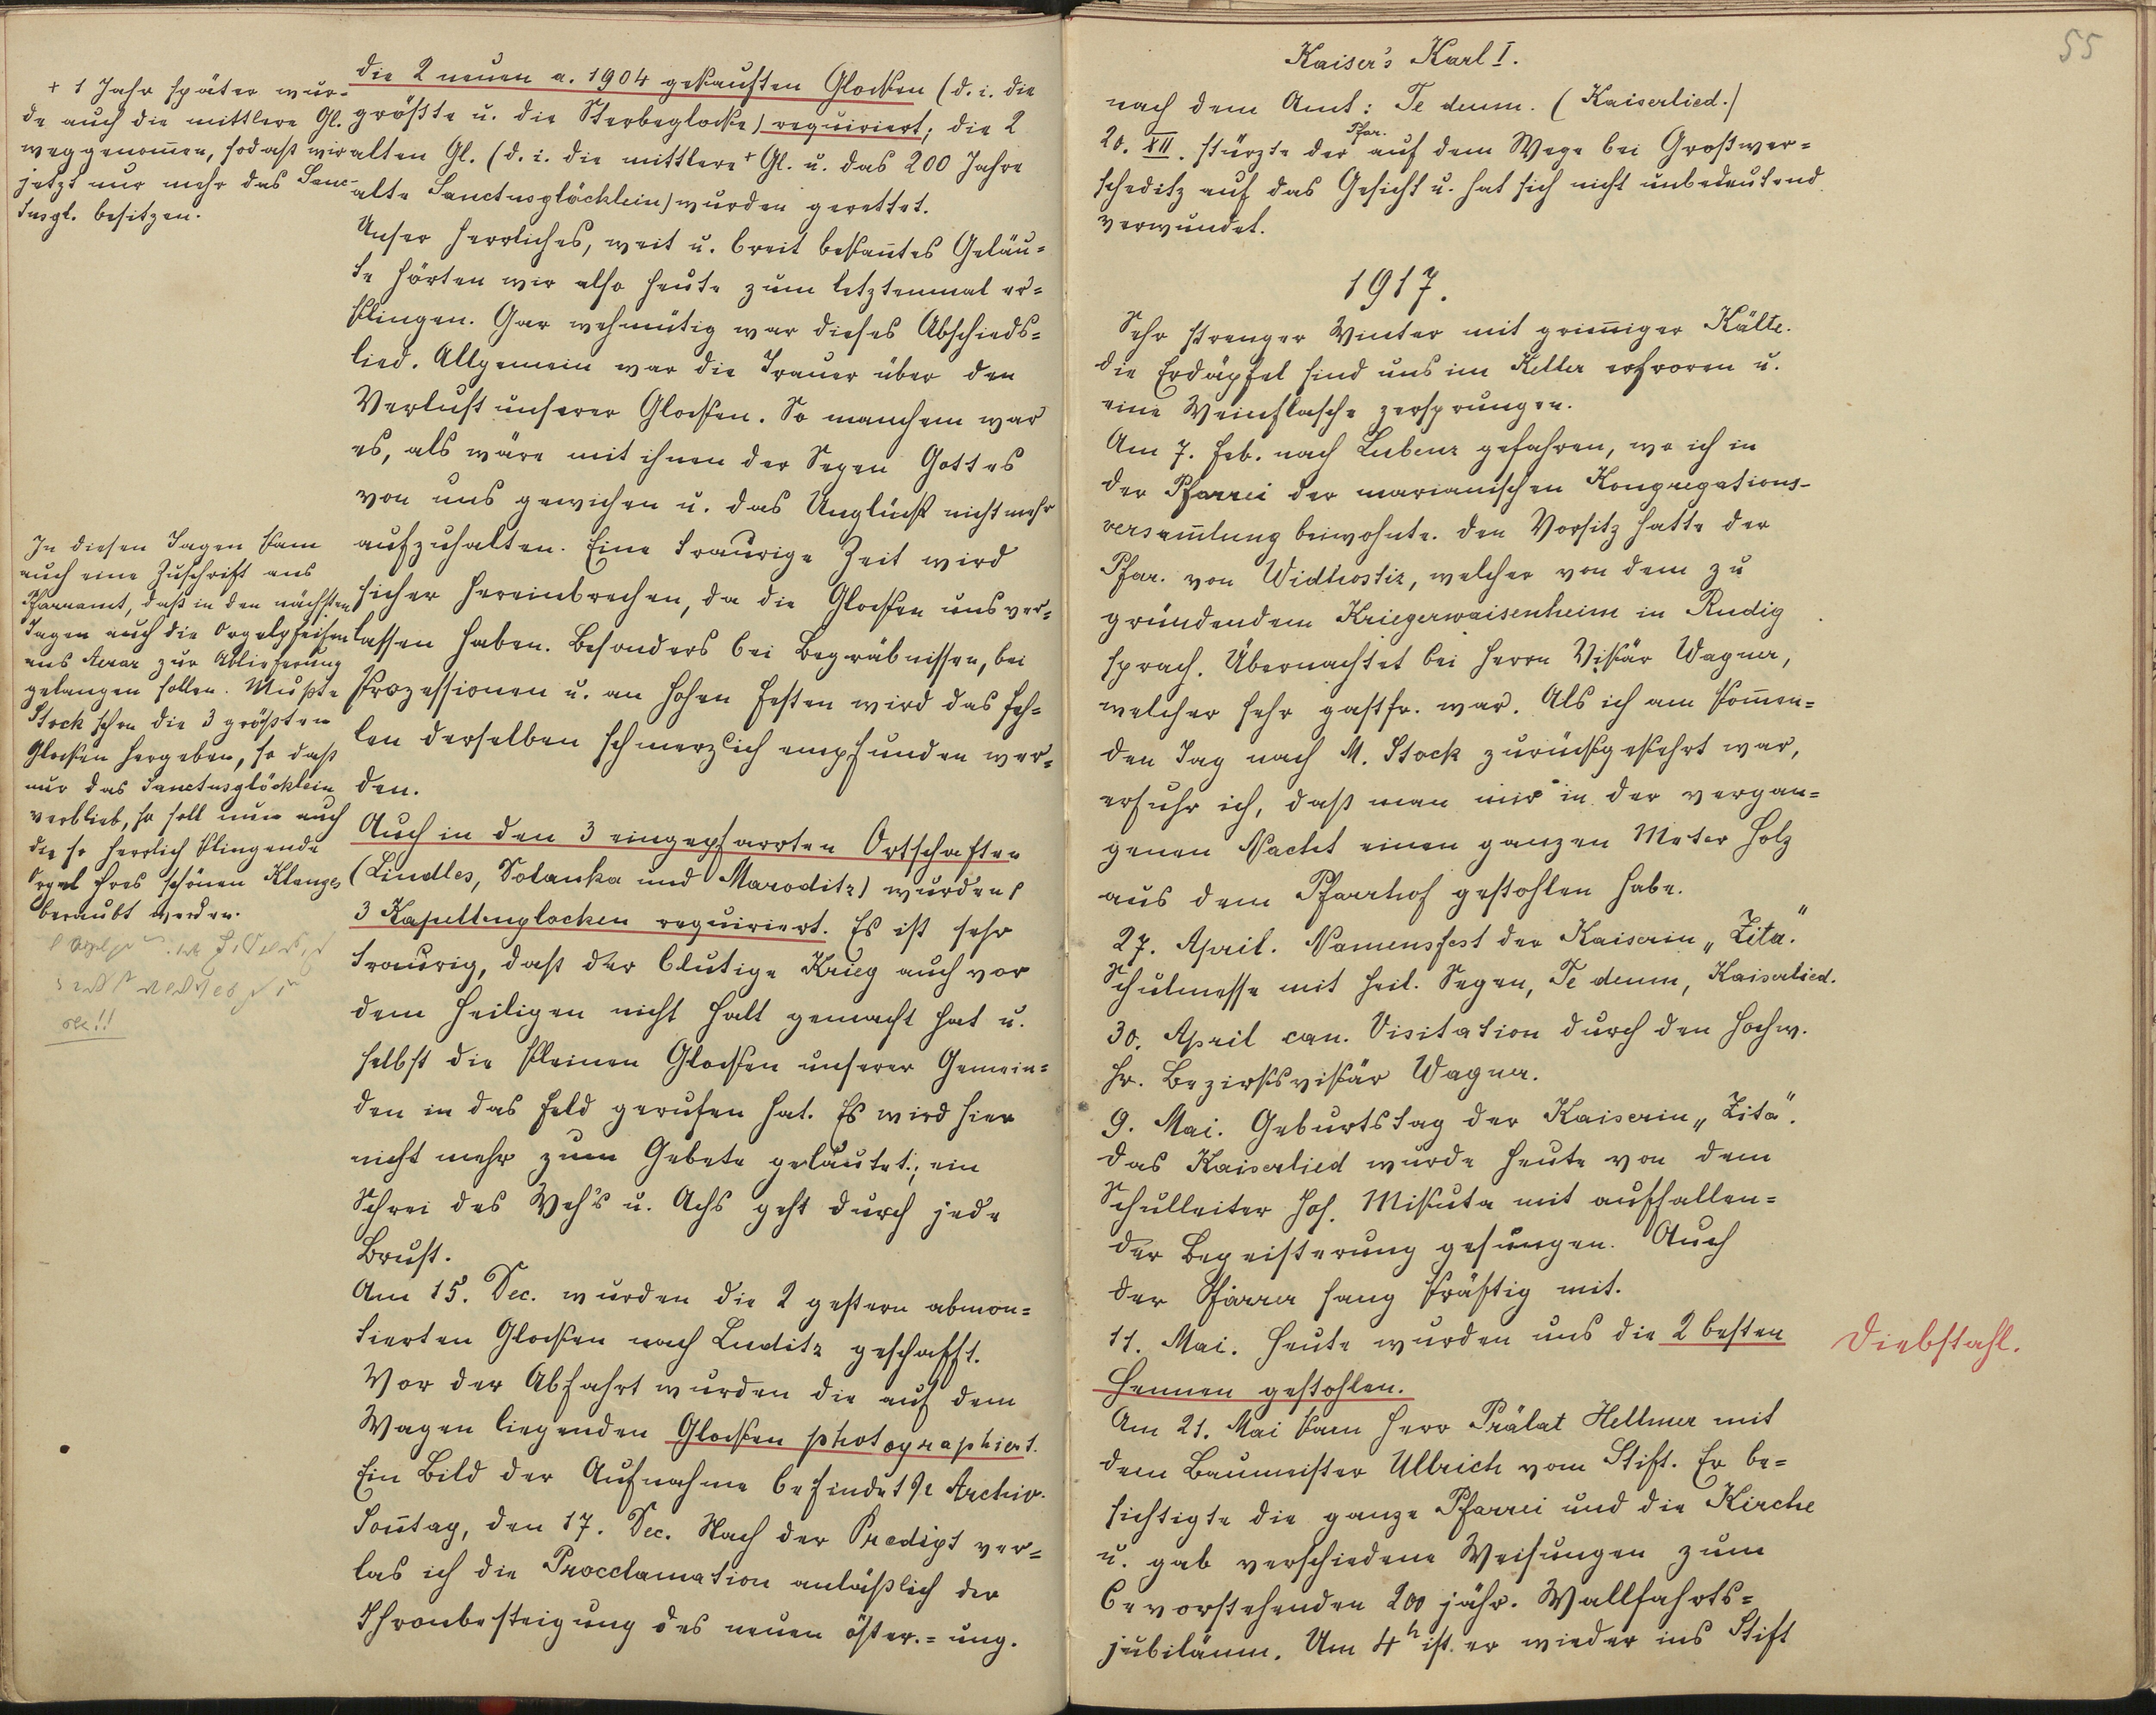 + 1 Jahr später wur-
de auch die mittlere Gl.
weggenom̄en, sodaß wir
jetzt nur mehr das Sanc-
tusgl. besitzen.
In diesen Tagen kam
auch eine Zuschrift ans
Pfarramt, daß in den nächsten
Tagen auch die Orgelpfeifen
ans Aerar zur Ablieferung
gelangen sollen. Mußte
Stock schon die 3 größten
Glocken hergeben, so daß
nur das Sanctusglöcklein
verblieb, so soll nun auch
die so herrlich klingende
Orgel ihres schönen Klanges
beraubt werden.
die 2 neuen a. 1904 gekauften Glocken (d. i. die
größte u. die Sterbeglocke) requiriert; die 2
alten Gl. (d. i. die mittlere + Gl. u. das 200 Jahre
alte Sanctusglöcklein) wurden gerettet.
Unser herrliches, weit u. breit bekan̄tes Geläu=
te hörten wir also heute zum letztenmal er=
klingen. Gar wehmütig war dieses Abschieds=
lied. Allgemein war die Trauer über den
Verlust unserer Glocken. So manchem war
es, als wäre mit ihnen der Segen Gottes
von uns gewichen u. das Unglück nicht mehr
aufzuhalten. Eine traurige Zeit wird
sicher hereinbrechen, da die Glocken uns ver=
lassen haben. Besonders bei Begräbnissen, bei
Prozessionen u. an hohen Festen wird das Feh=
len derselben schmerzlich empfunden wer=
den.
Auch in den 3 eingepfarrten Ortschaften
(Lindles, Solanka und Maroditz) wurden
3 Kapellenglocken requiriert. Es ist sehr
traurig, daß der blutige Krieg auch vor
dem Heiligen nicht Halt gemacht hat u.
selbst die kleinen Glocken unserer Gemein=
den in das Feld gerufen hat. Es wird hier
nicht mehr zum Gebete geläutet; ein
Schrei des Weh's u. Achs geht durch jede
Brust.
Am 15. Dec. wurden die 2 gestern abmon=
tierten Glocken nach Luditz geschafft.
Vor der Abfahrt wurden die auf dem
Wagen liegenden Glocken photographiert.
Ein Bild der Aufnahme befindet Archiv.
Son̄tag, den 17. Dec. Nach der Predigt ver=
las ich die Procclamation anläßlich der
Thronbesteigung des neuen öster.=ung.
55
Kaiser's Karl I.
nach dem Amt: Te deum. (Kaiserlied.)
20. XII. stürzte der Pfar. auf dem Wege bei Großwer=
scheditz auf das Gesicht u. hat sich nicht unbedeutend
verwundet.
1917.
Sehr strenger Winter mit grim̄iger Kälte.
die Erdäpfel sind uns im Keller erfroren u.
eine Weinflasche zersprungen.
Am 7. Feb. nach Lubenz gefahren, wo ich in
der Pfarrei der marianischen Kongregations-
versam̄lung beiwohnte. Den Vorsitz hatte der
Pfar. von Widhostiz, welcher von dem zu
gründendem Kriegerwaisenheim in Rudig
sprach. Übernachtet bei Herrn Vikär Wagner,
welcher sehr gastfr. war. Als ich am kom̄en=
den Tag nach M. Stock zurückgekehrt war,
erfuhr ich, daß man mir in der vergan=
genen Nacht einen ganzen Meter Holz
aus dem Pfarrhof gestohlen habe.
27. April. Namensfest der Kaiserin „Zita."
Schulmesse mit heil. Segen, Te deum, Kaiserlied.
30. April can. Visitation durch den hochw.
Hr. Bezirksvikär Wagner.
9. Mai. Geburtstag der Kaiserin „Zita".
das Kaiserlied wurde heute von dem
Schulleiter Joh. Mikuta mit auffallen=
der Begeisterung gesungen. Auch
der Pfarrer sang kräftig mit.
11. Mai. Heute wurden uns die 2 besten
Hennen gestohlen.
Diebstahl.
Am 21. Mai kam Herr Prälat Hellmer mit
dem Baumeister Ullrich vom Stift. Er be=
sichtigte die ganze Pfarrei und die Kirche
u. gab verschiedene Weisungen zum
bevorstehenden 200 jähr. Wallfahrts=
jubiläum. Um 4h ist er wieder ins Stift